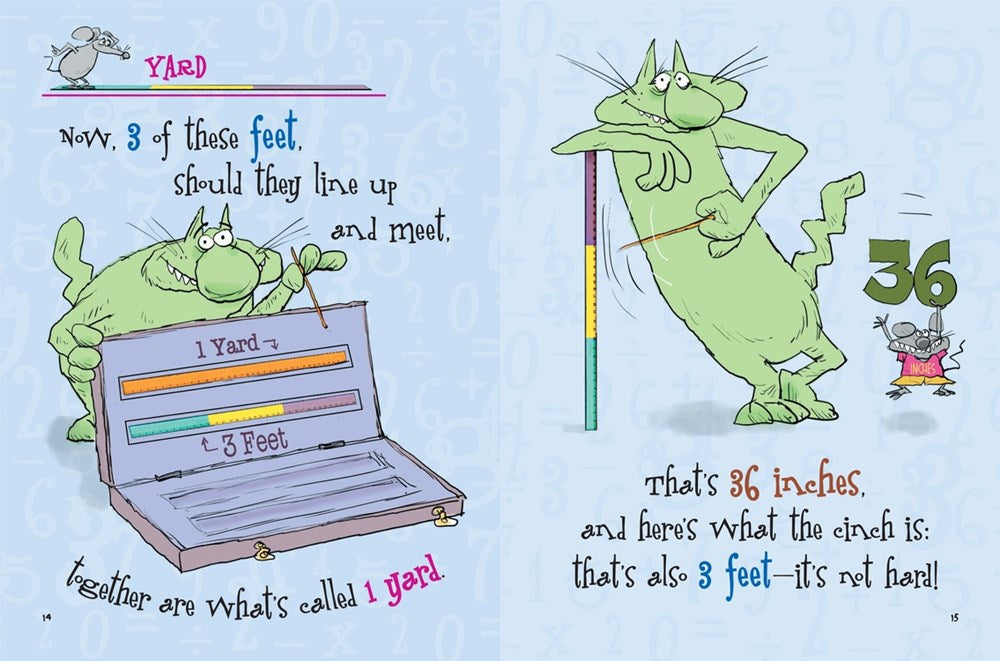 YARD
Now, 3 of these feet,
should they line up
and meet,
1 Yard
3 Feet
together are what's called 1 yard.
14
36
INCHES
That's 36 inches,
and here's what the cinch is:
that's also 3 feet—it's not hard!
15